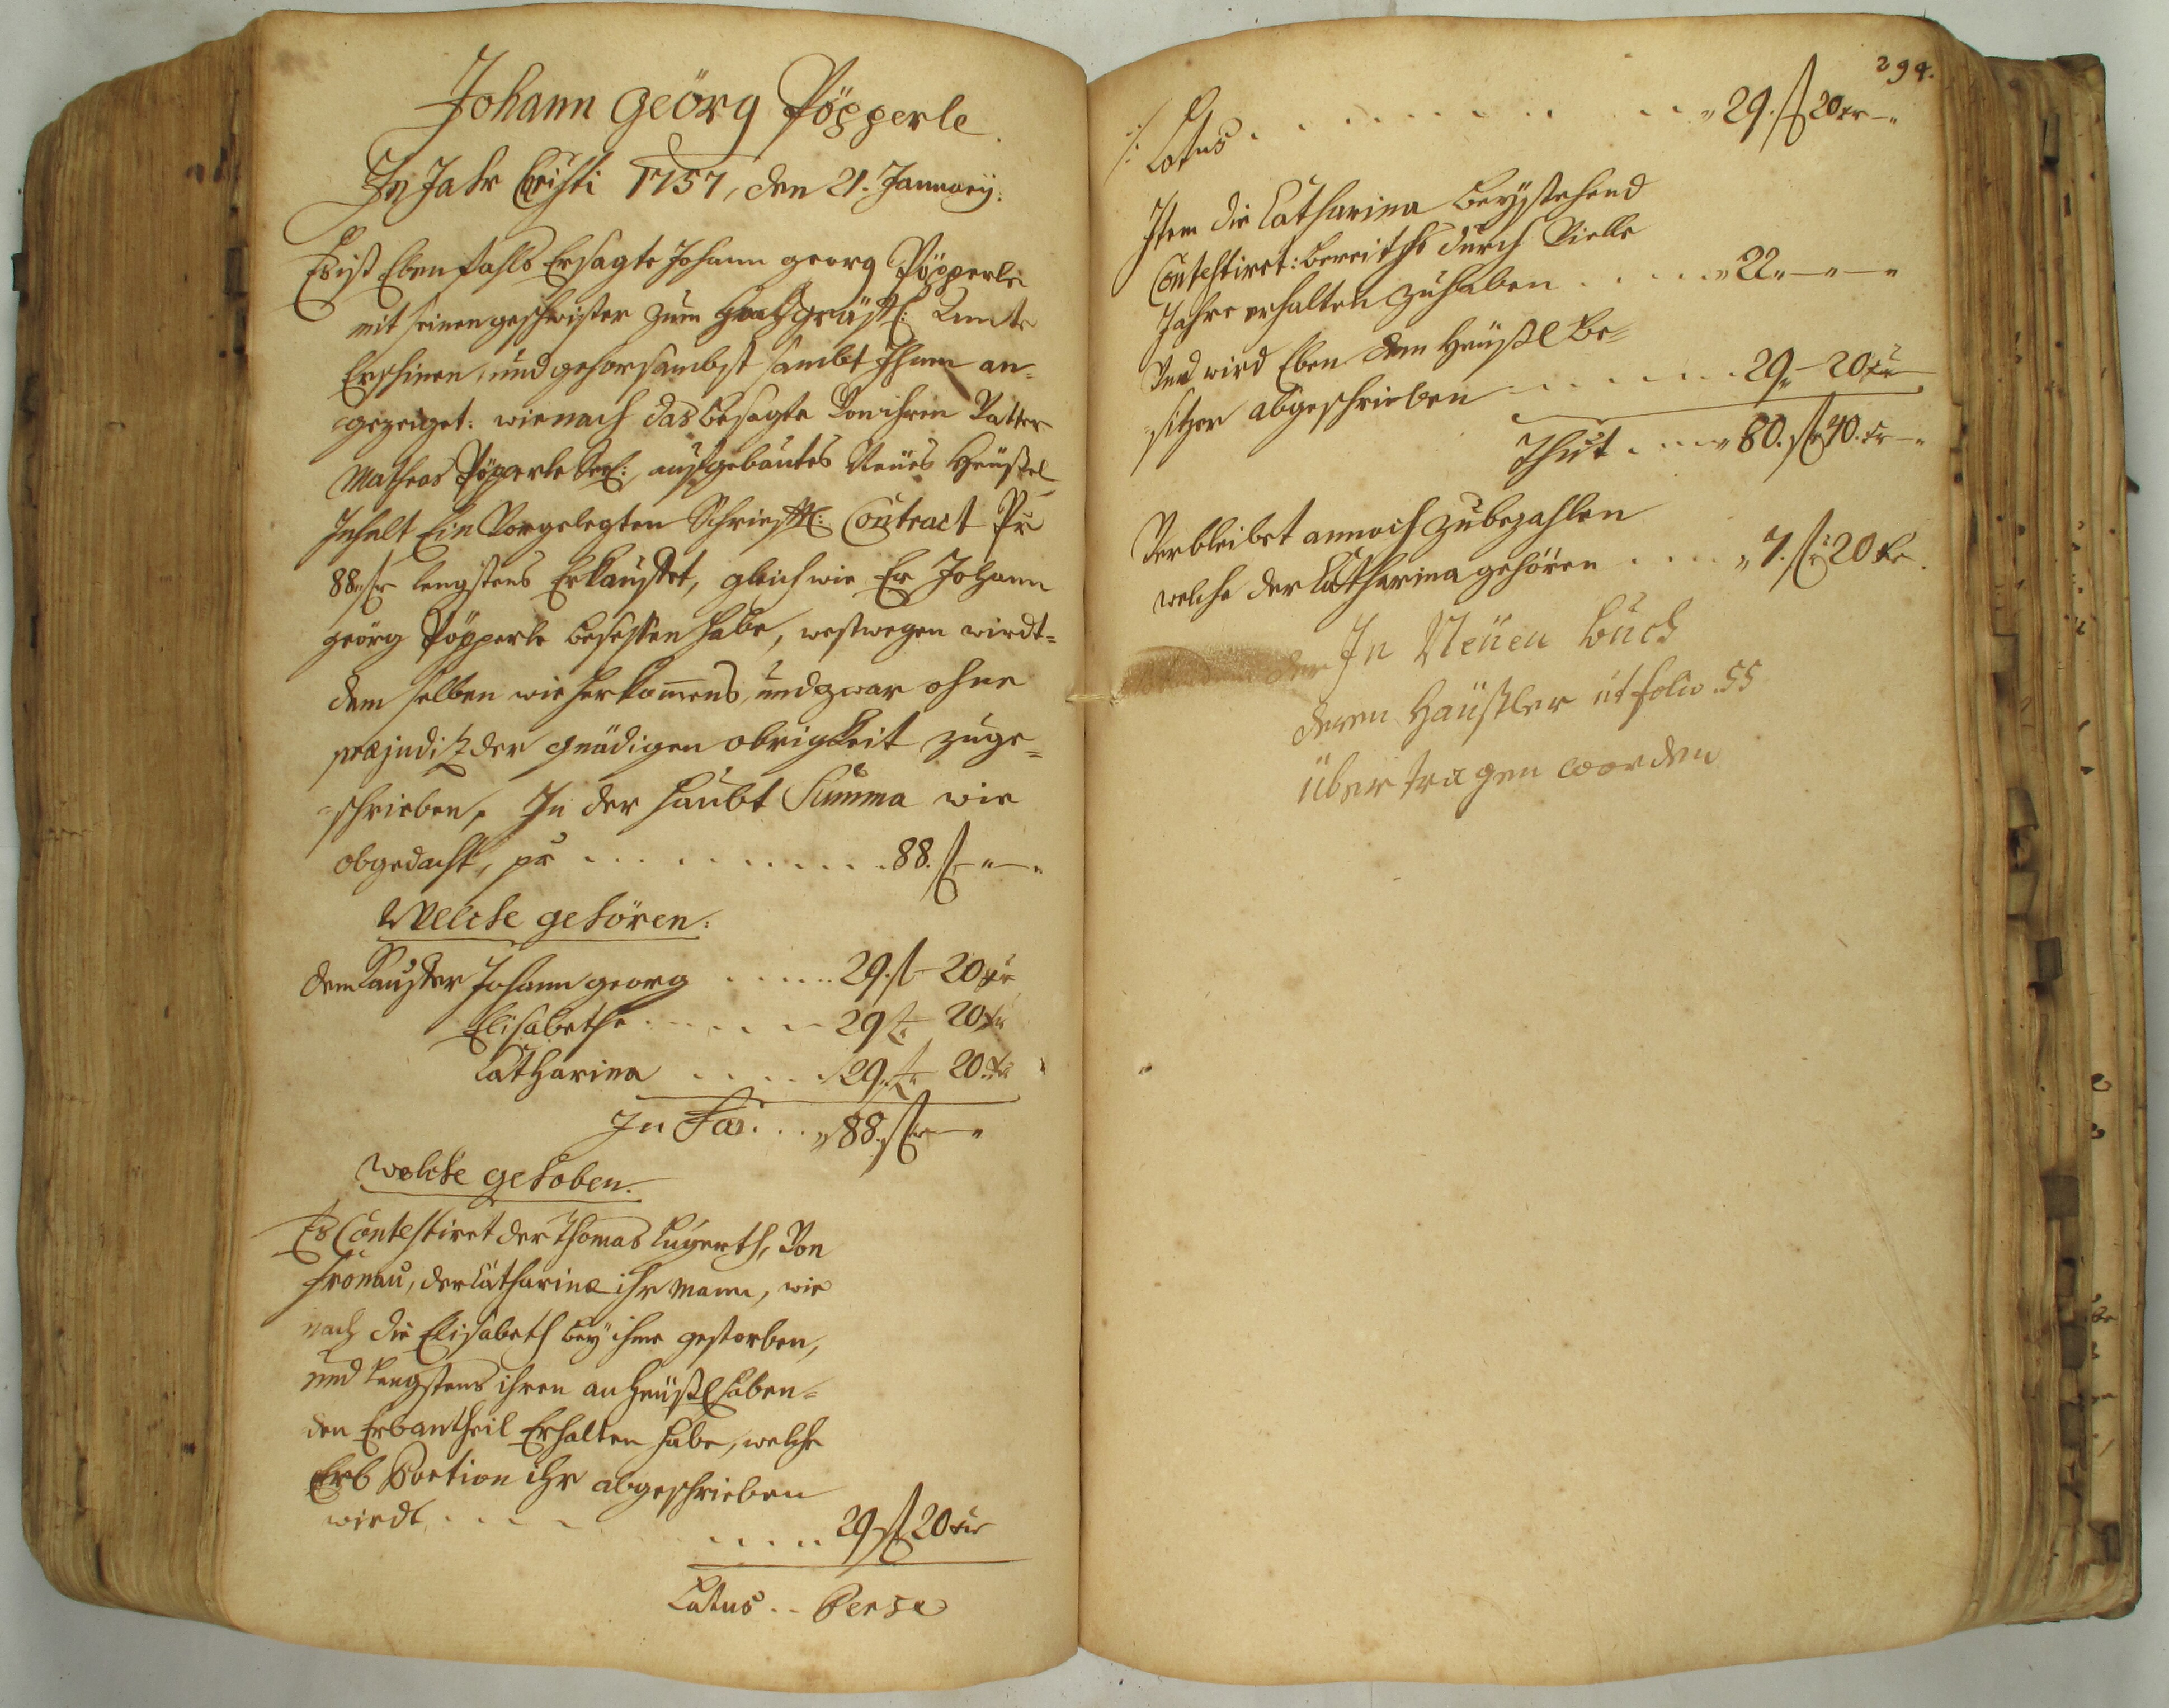 Johann Georg Pöpperle.
In Jahr Christi 1757, den 21. January:
Es ist Ebenfahls Ersagte Johann georg Pöpperle
mit seinen geschwister zum Hochgräffl: Ambte
Erschinen, und gehorsambst sambt Ihnen an=
gezeiget: wie nach das besagte Von ihren Vatter
Matheas Pöpperle Seel: aufgebautes Neües Heüßel
Inhalt Ein Vorgelegten Schriefftl: Contract Pr
88 fr lengstens Erkauffet, gleich wie Er Johann
georg Pöpperle besessen habe, westwegen wirdt=
dem selben wie herkommens, und zwar ohne
præjuditz der gnädigen obrigkeit zuge=
=schrieben, In der haubt Summa wie
obgedacht, pr . . . . . . . . . . . 88. f - " - "
Welche gehören:
dem Kauffer Johann georg . . . . . 29. f - 20 xr
Elisabethe . . . . . 29 f - 20 xr
Catharina . . . . . 29. f - 20 xr
In Fa: . . . " 88. fr - "
welche gehoben.
Es Contestiret der Thomas Lugerth, Von
Fronau, der Catharina ihr Mann, wie
nach die Elisabeth bey ihme gestorben,
und lengstens ihren an Heüßl haben=
den Erbantheil Erhalten habe, welche
Erb Portion ihr abgeschrieben
wirdt . . . . . . . . 29 f 20 xr
Latus . . Per se
294.
./. Latus . . . . . . . . . . " 29. f 20 xr - "
Item die Catharina beystehend
Contestiret: bereiths durch Vielle
Jahre erhalten zuhaben . . . . . " 22 " - " - "
Und wird Eben dem Heüßl be=
=sitzer abgeschrieben . . . . . . . 29 " - 20 xr
Thut . . . . " 80. fr 40. xr - "
Verbleibet annoch zubezahlen
welche der Catharina gehören . . . . " 7. fr 20 xr.
In Neüen buch
deren Haüßler ut folio. 55
übertragen worden